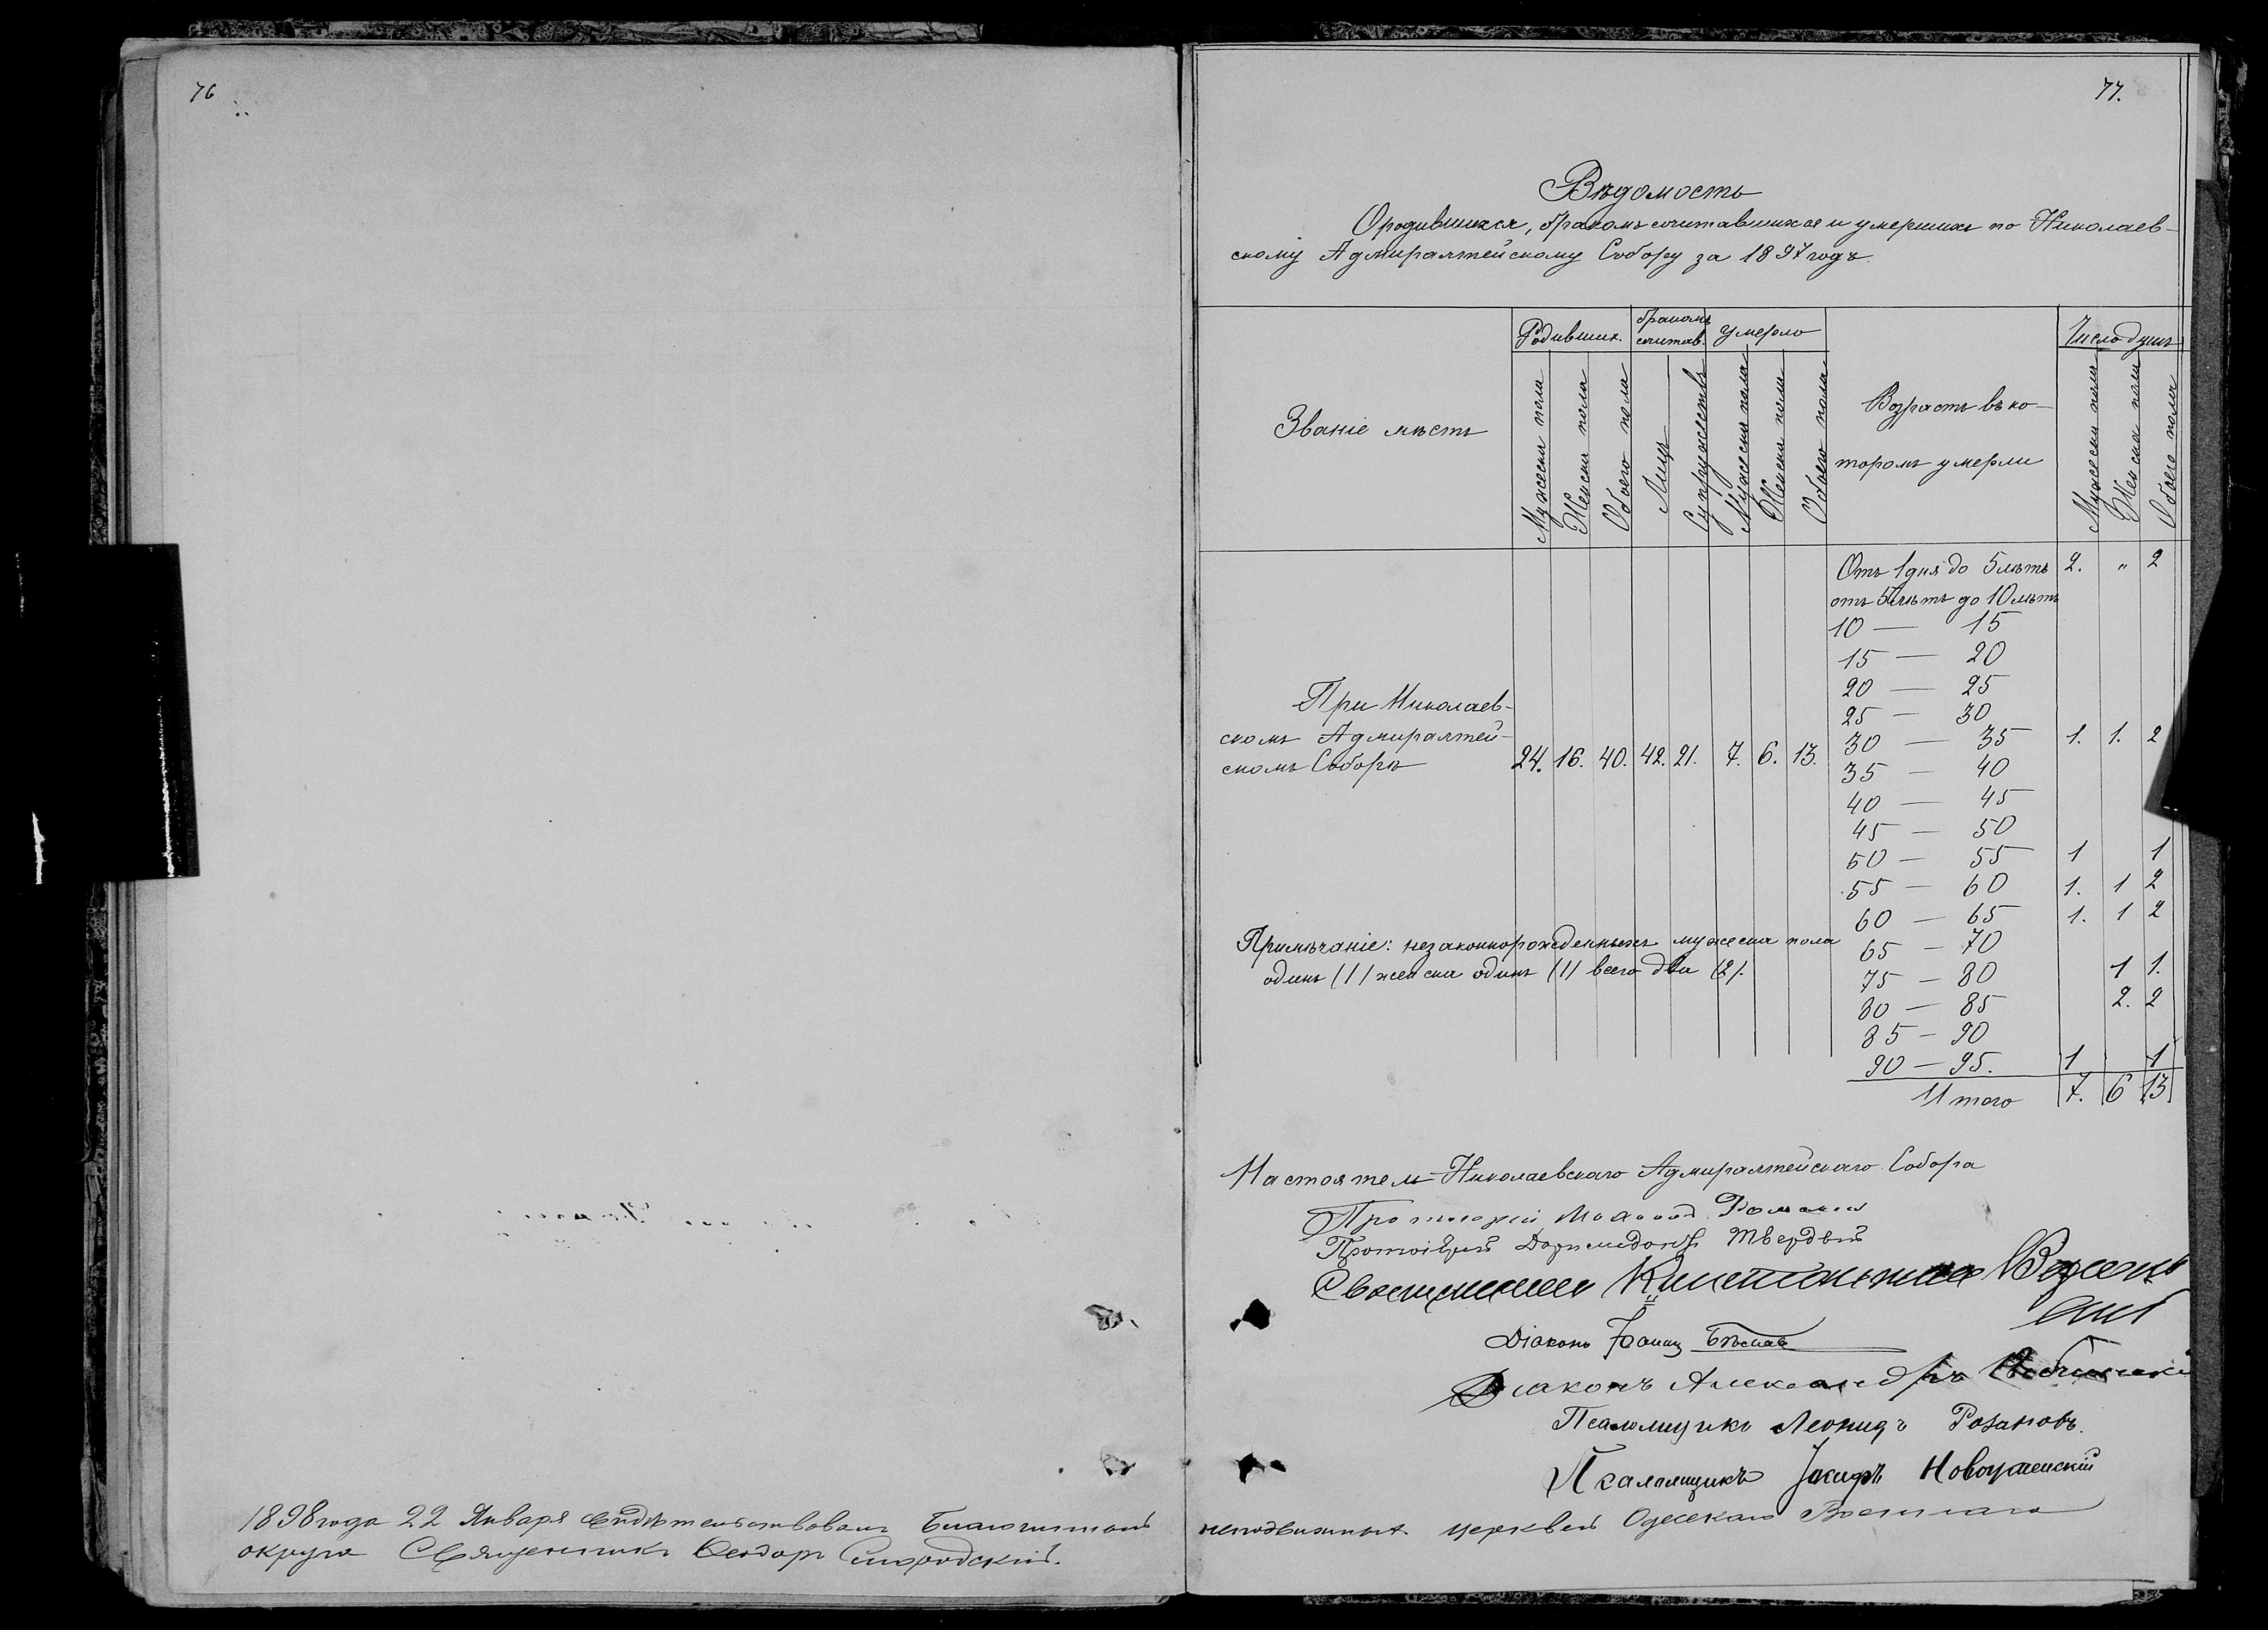 76
1898 года 22 Января свидѣтельствовалъ Благочинный
неподвижныхъ церквей Одесскаго Военнаго
округа Священникъ Ѳеодоръ
77.
Вѣдомость
О родившихся, бракомъ сочитавшихся и умершихъ по Николаев-
скому Адмиралтейскому Собору за 1897 годъ.
Званіе мѣстъ
Родивших.
бракомъ сочитав.
умерло
Возрастъ въ ко-
торомъ умерли
Число душъ
Мужеска пола
Женска пола
Обоего пола
Лицъ
Супружествъ
Мужеска пола
Женска пола
Обоего пола
Мужеска пола
Женска пола
Обоего пола
Отъ 1 дня до 5 лѣтъ 2. „ 2
отъ 5 лѣтъ до 10 лѣтъ
10 — 15
15 — 20
20 — 25
25 — 30
При Николаев-
скомъ Адмиралтей-
скомъ Соборѣ 24. 16. 40. 42. 21. 7. 6. 13.
30 — 35 1. 1. 2
35 — 40
40 — 45
45 — 50
50 — 55 1 1
55 — 60 1. 1 2
60 — 65 1. 1 2
65 — 70
75 — 80 1 1.
80 — 85 2. 2
85 — 90
90 — 95. 1 1
Итого 7. 6 13
Примѣчаніе: незаконнорожденныхъ мужеска пола
одинъ (1) женска одинъ (1) всего два (2).
Настоятель Николаевскаго Адмиралтейскаго Собора
Протоіерей
Протоіерей Доримедонтъ Твердый
Священникъ
Діаконъ
Діаконъ Александръ
Псаломщикъ Леонидъ Розановъ.
Псаломщикъ